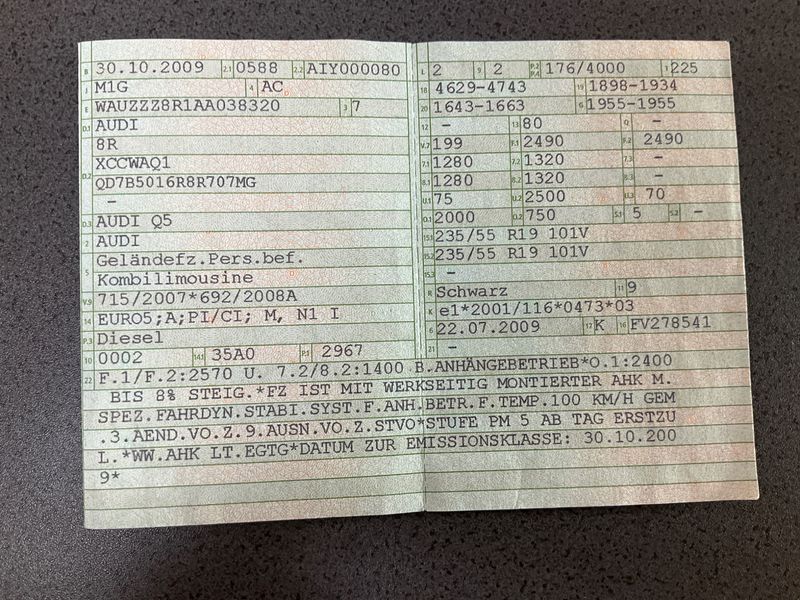 B 30.10.2009 2.1 0588 2.2 AIY000080
J M1G 4 AC
E WAUZZZ8R1AA038320 3 7
D.1 AUDI
D.2 8R
XCCWAQ1
QD7B5016R8R707MG
–
D.3 AUDI Q5
2 AUDI
5 Geländefz.Pers.bef.
Kombilimousine
V.9 715/2007*692/2008A
14 EURO5;A;PI/CI; M, N1 I
P.3 Diesel
10 0002 14.1 35A0 P.1 2967
L 2 9 2 P.2 P.4 176/4000 T 225
18 4629-4743 19 1898-1934
20 1643-1663 G 1955-1955
12 – 13 80 Q –
V.7 199 F.1 2490 F.2 2490
7.1 1280 7.2 1320 7.3 –
8.1 1280 8.2 1320 8.3 –
U.1 75 U.2 2500 U.3 70
O.1 2000 O.2 750 S.1 5 S.2 –
15.1 235/55 R19 101V
15.2 235/55 R19 101V
15.3 –
R Schwarz 11 9
K e1*2001/116*0473*03
6 22.07.2009 17 K 16 FV278541
21 –
22 F.1/F.2:2570 U. 7.2/8.2:1400 B.ANHÄNGEBETRIEB*O.1:2400
BIS 8% STEIG.*FZ IST MIT WERKSEITIG MONTIERTER AHK M.
SPEZ.FAHRDYN.STABI.SYST.F.ANH.BETR.F.TEMP.100 KM/H GEM
.3.AEND.VO.Z.9.AUSN.VO.Z.STVO*STUFE PM 5 AB TAG ERSTZU
L.*WW.AHK LT.EGTG*DATUM ZUR EMISSIONSKLASSE: 30.10.200
9*